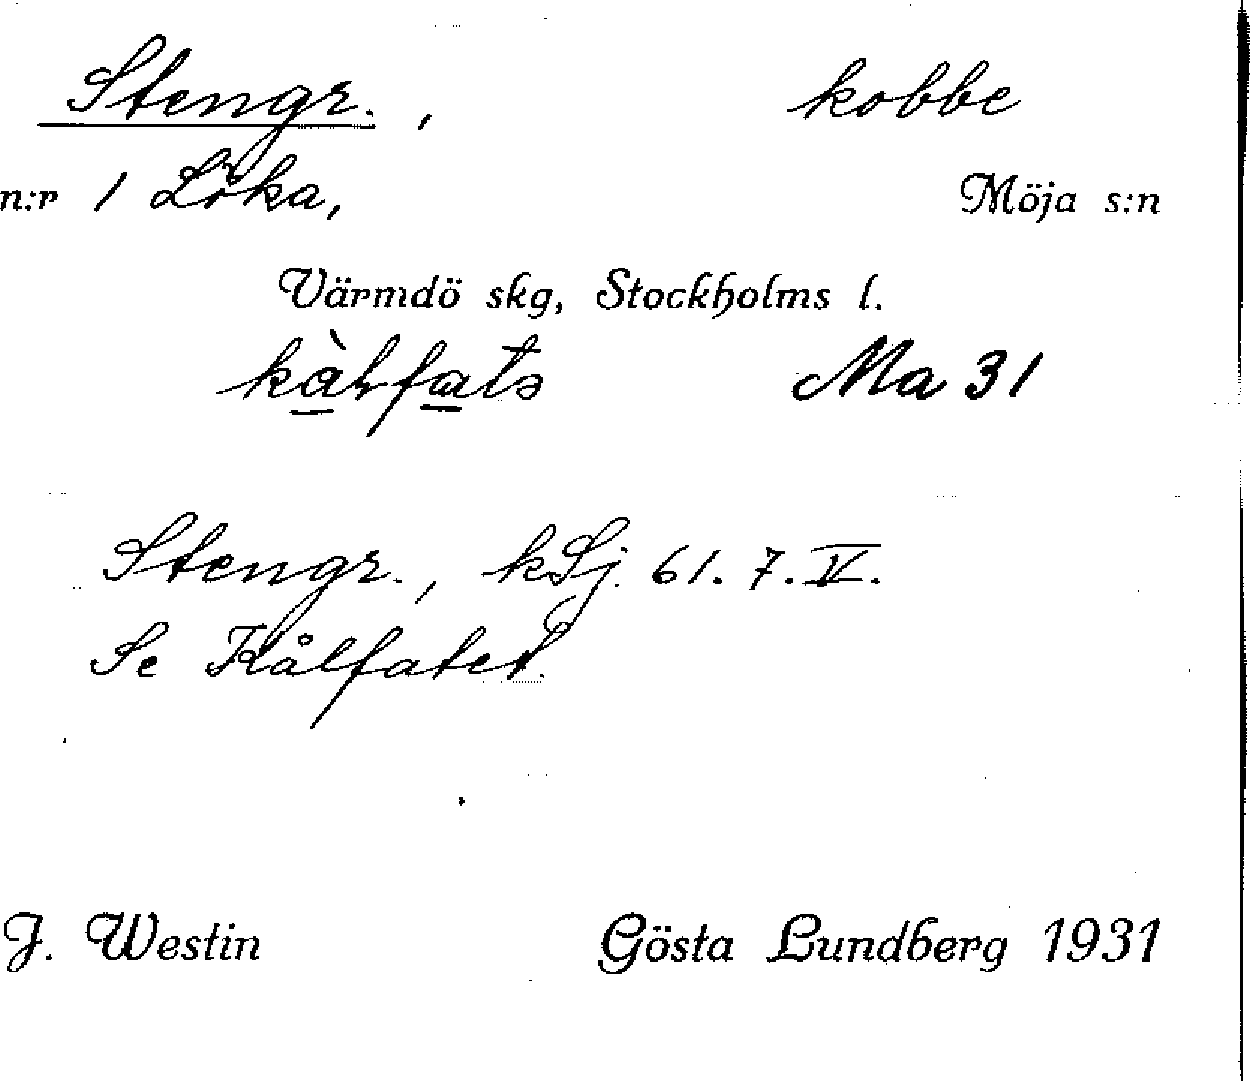 Stengr., kobbe
n:r 1 Löka, Möja s:n
Värmdö skg, Stockholms l.
kàlfats Ma 31
Stengr., kSj. 61. 7. V.
Se Kålfatet.
J. Westin Gösta Lundberg 1931